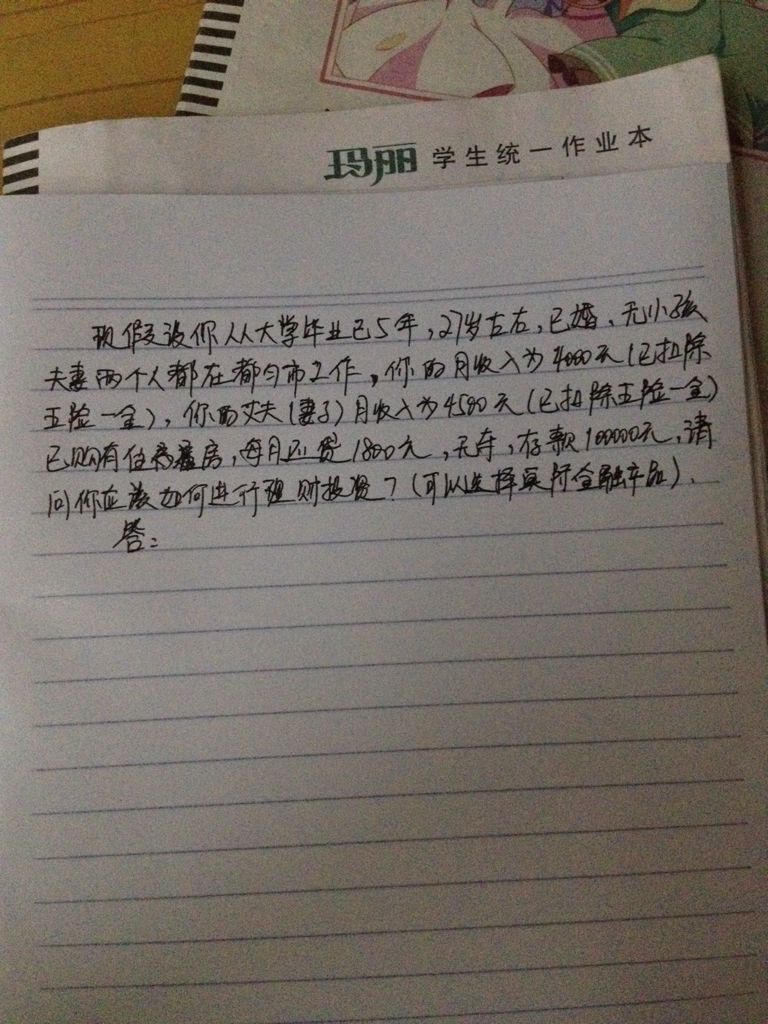 玛丽 学生统一作业本
现假设你从大学毕业已5年，27岁左右，已婚，无小孩
夫妻两个人都在都匀市工作，你的月收入为4000元（已扣除
五险一金），你的丈夫（妻子）月收入为4500元（已扣除五险一金）
已购有住房，每月还贷1800元，无车，存款100000元，请
问你应该如何进行理财投资？（可以选择实际金融产品）．
答：